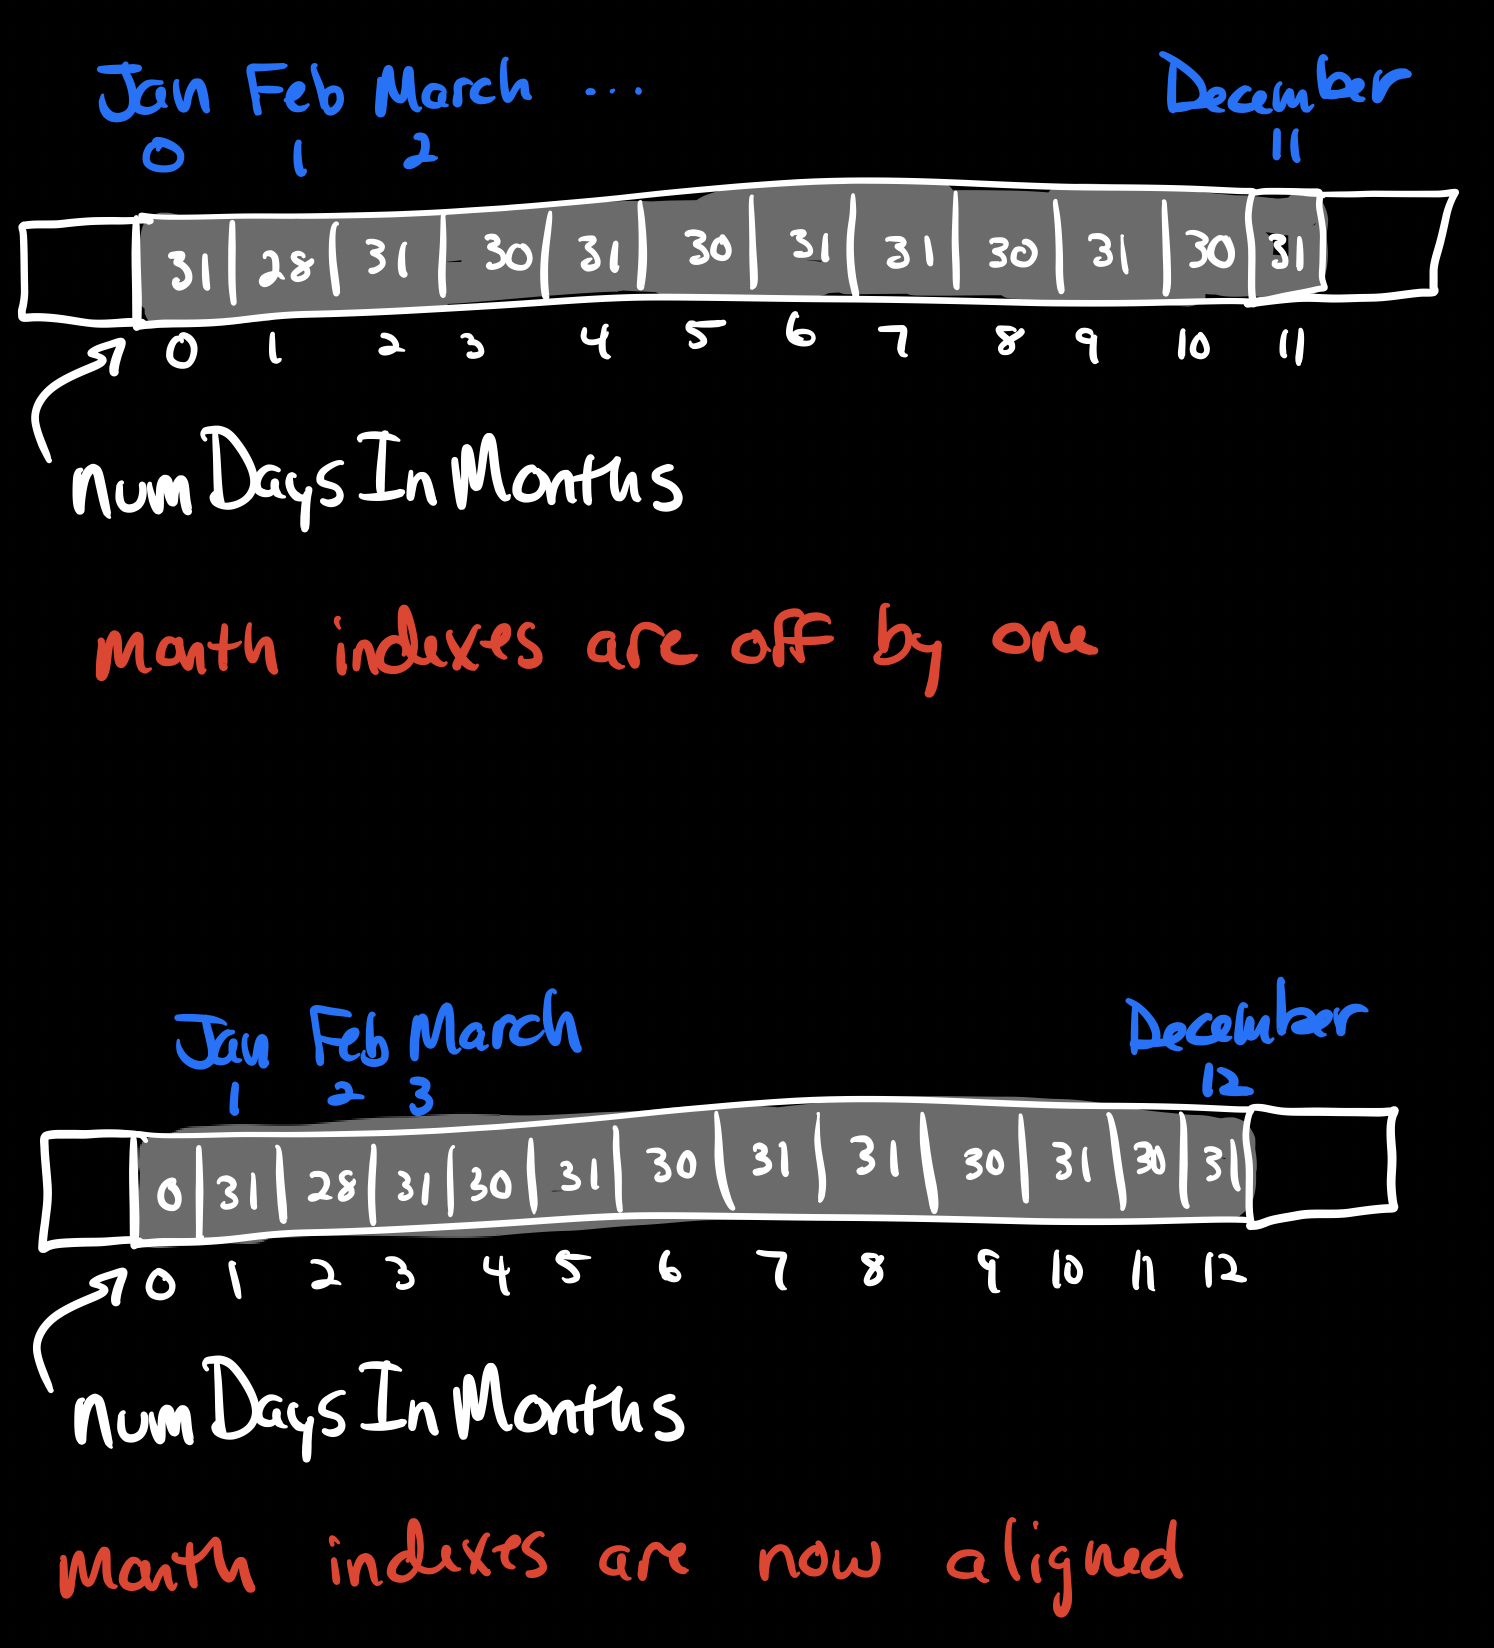 Jan Feb March ... December
0 1 2 11
31 28 31 30 31 30 31 31 30 31 30 31
0 1 2 3 4 5 6 7 8 9 10 11
numDaysInMonths
month indexes are off by one
Jan Feb March December
1 2 3 12
0 31 28 31 30 31 30 31 31 30 31 30 31
0 1 2 3 4 5 6 7 8 9 10 11 12
numDaysInMonths
month indexes are now aligned